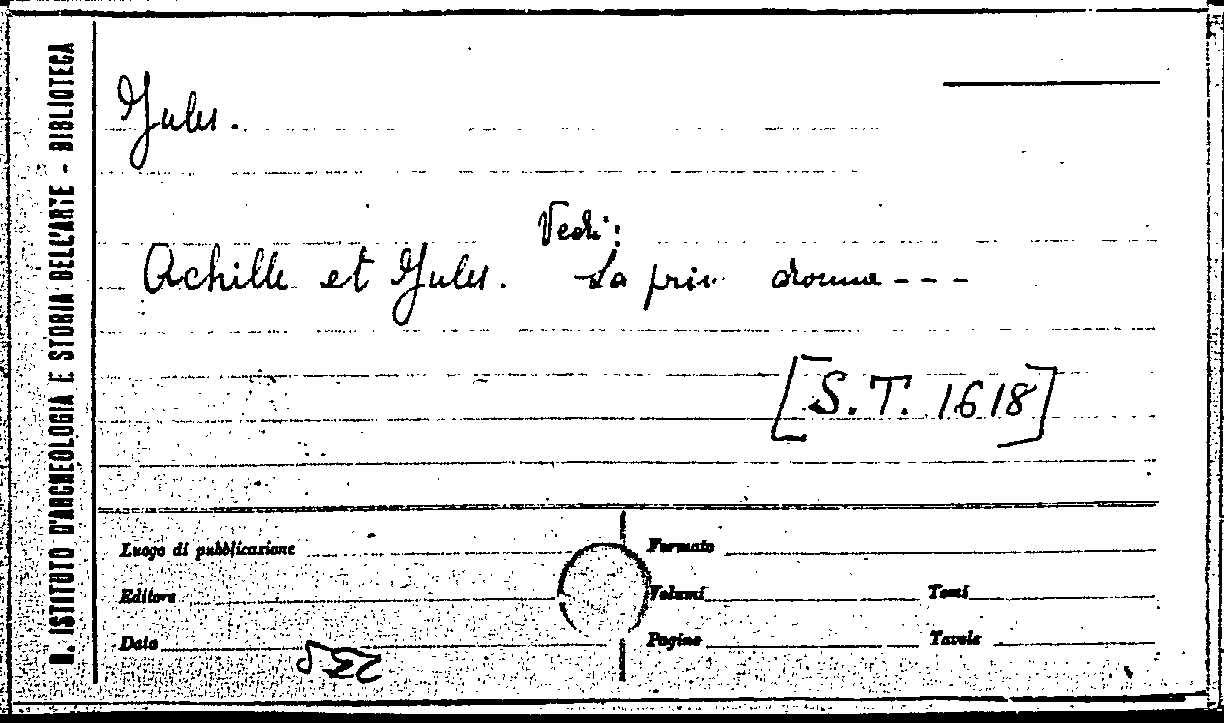 R. ISTITUTO D'ARCHEOLOGIA E STORIA DELL'ARTE - BIBLIOTECA
Jules.
Vedi:
Achille et Jules. La prin donna - - -
[S. T. 1618]
Luogo di pubblicazione
Formato
Editore
Volumi
Tomi
Data
Pagine
Tavole